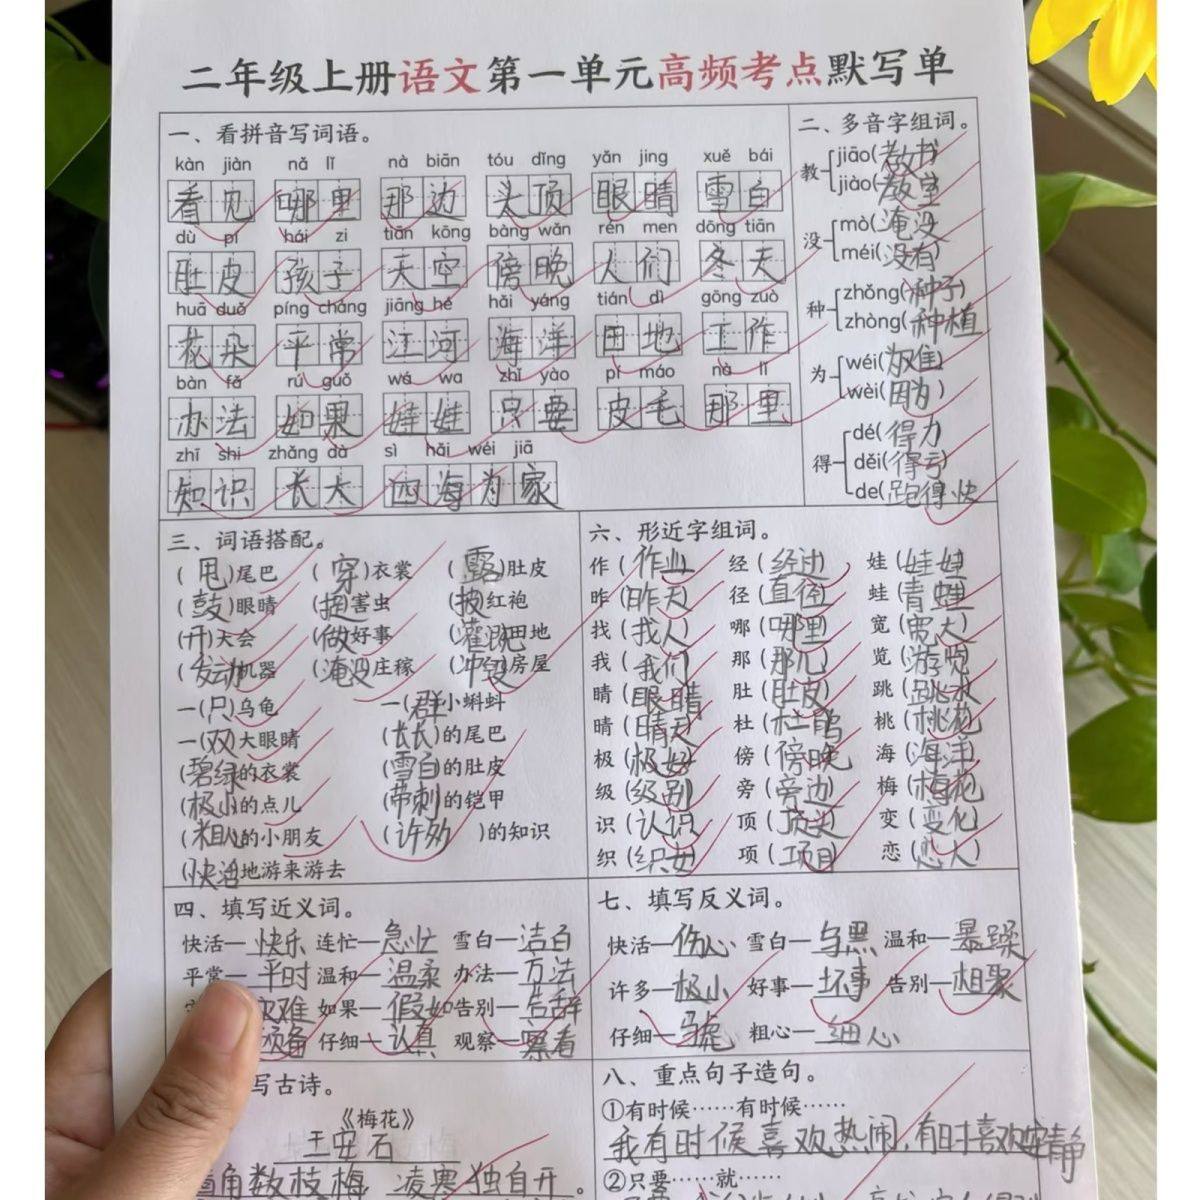 二年级上册语文第一单元高频考点默写单
一、看拼音写词语。
kàn jiàn nǎ lǐ nà biān tóu dǐng yǎn jing xuě bái
看见 哪里 那边 头顶 眼睛 雪白
dù pí hái zi tiān kōng bàng wǎn rén men dōng tiān
肚皮 孩子 天空 傍晚 人们 冬天
huā duǒ píng cháng jiāng hé hǎi yáng tián dì gōng zuò
花朵 平常 江河 海洋 田地 工作
bàn fǎ rú guǒ wá wa zhǐ yào pí máo nà lǐ
办法 如果 娃娃 只要 皮毛 那里
zhī shi zhǎng dà sì hǎi wéi jiā
知识 长大 四海为家
二、多音字组词。
教 jiāo(教书)
jiào(教室)
没 mò(淹没)
méi(没有)
种 zhǒng(种子)
zhòng(种植)
为 wéi(为难)
wèi(因为)
得 dé(得力)
děi(得亏)
de(跑得快
三、词语搭配。
(甩)尾巴 (穿)衣裳 (露)肚皮
(鼓)眼睛 (捉)害虫 (披)红袍
(开)大会 (做)好事 (灌溉)田地
(发动)机器 (淹没)庄稼 (冲毁)房屋
一(只)乌龟 一(群)小蝌蚪
一(双)大眼睛 (长长)的尾巴
(碧绿)的衣裳 (雪白)的肚皮
(极小)的点儿 (带刺)的铠甲
(粗心)的小朋友 (许多)的知识
(快活)地游来游去
六、形近字组词。
作(作业) 经(经过) 娃(娃娃)
昨(昨天) 径(直径) 蛙(青蛙)
找(找人) 哪(哪里) 宽(宽大)
我(我们) 那(那儿) 览(游览)
睛(眼睛) 肚(肚皮) 跳(跳水)
晴(晴天) 杜(杜鹃) 桃(桃花)
极(极好) 傍(傍晚) 海(海洋)
级(级别) 旁(旁边) 梅(梅花)
识(认识) 顶(顶头) 变(变化)
织(织女) 项(项目) 恋(恋人)
四、填写近义词。
快活—快乐 连忙—急忙 雪白—洁白
平常—平时 温和—温柔 办法—方法
灾难 如果—假如 告别—告辞
预备 仔细—认真 观察—察看
七、填写反义词。
快活—伤心 雪白—乌黑 温和—暴躁
许多—极少 好事—坏事 告别—相聚
仔细—马虎 粗心—细心
写古诗。
《梅花》
王安石
墙角数枝梅 凌寒独自开。
八、重点句子造句。
①有时候……有时候……
我有时候喜欢热闹,有时喜欢安静
②只要……就……